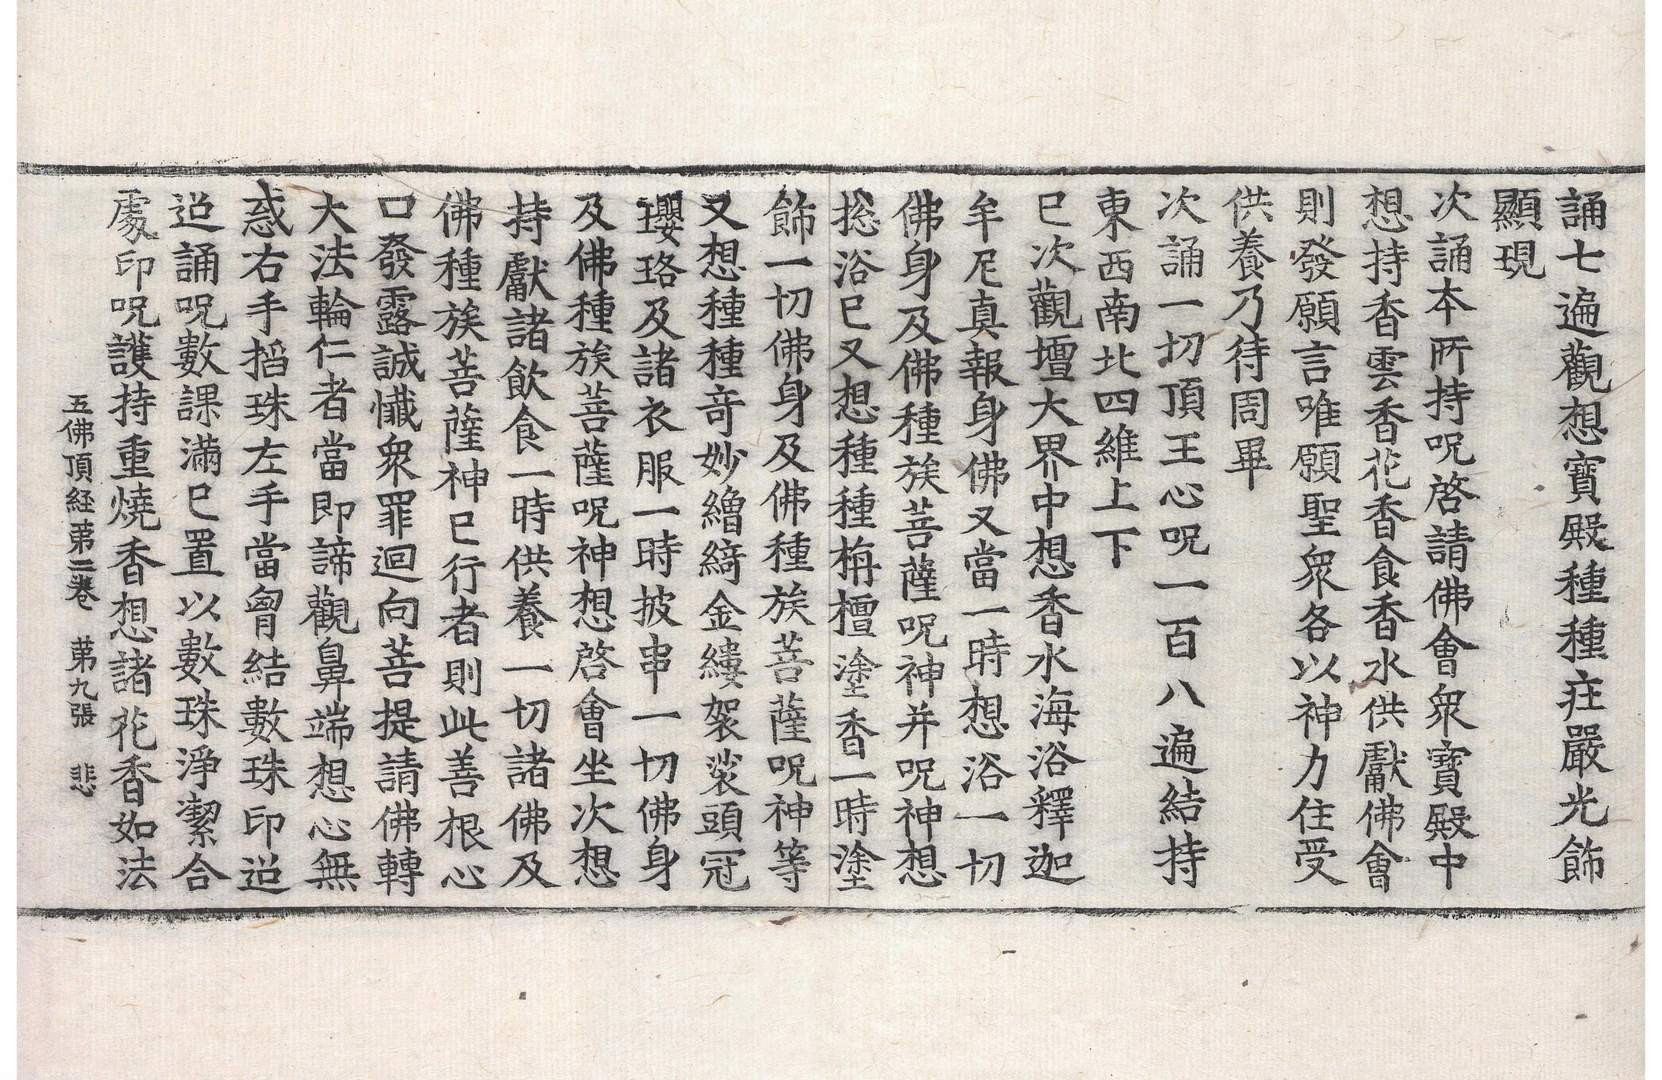 誦七遍觀想寶殿種種疰嚴光飾
顯現
次誦本所持呪啓請佛會衆寶殿中
想持香雲香花香食香水供獻佛會
則發願言唯願聖衆各以神力住受
供養乃待周畢
次誦一切頂王心呪一百八遍結持
東西南北四維上下
已次觀壇大界中想香水海浴釋迦
牟尼真報身佛又當一時想浴一切
佛身及佛種族菩薩呪神并呪神想
捴浴已又想種種栴檀塗香一時塗
飾一切佛身及佛種族菩薩呪神等
又想種種竒妙繒綺金縷袈裟頭冠
瓔珞及諸衣服一時披串一切佛身
及佛種族菩薩呪神想啓會坐次想
持獻諸飲食一時供養一切諸佛及
佛種族菩薩神已行者則此善根心
口發露誠懺衆罪迴向菩提請佛轉
大法輪仁者當即諦觀鼻端想心無
惑右手搯珠左手當胷結數珠印迢
迢誦呪數課滿已置以數珠淨潔合
處印呪護持重燒香想諸花香如法
五佛頂経苐二卷 苐九張 悲